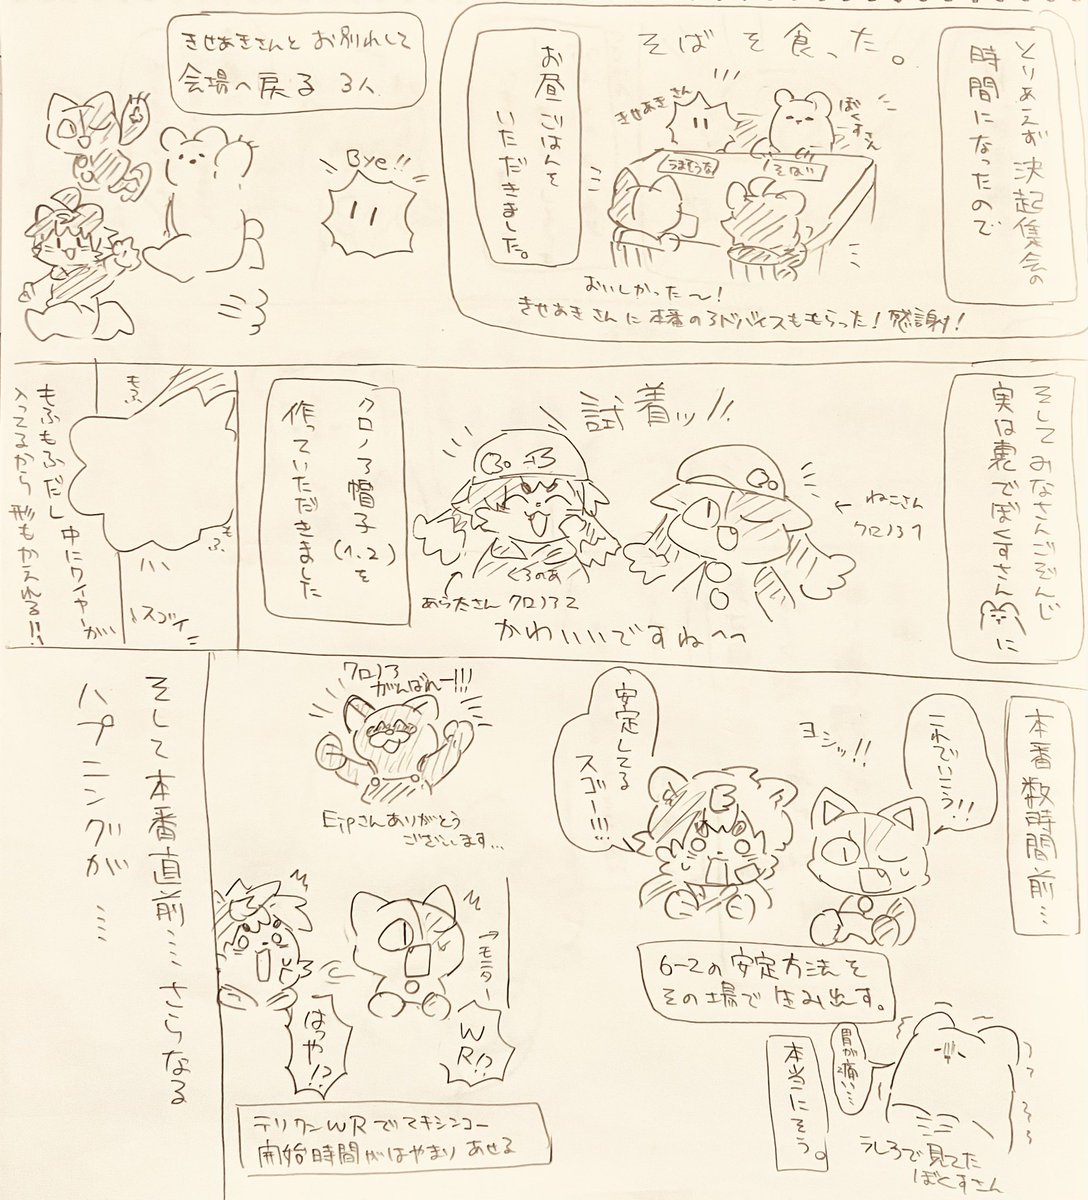 とりあえず決起集会の
時間になったので
そばを食った。
きせあきさん
ぼくすさん
うまそうな
そば
お昼ごはんを
いただきました。
おいしかった〜!
きせあきさんに本番のアドバイスももらった!感謝!
きせあきさんとお別れして
会場へ戻る3人
Bye!!
そしてみなさんごぞんじ
実は裏でぼくすさんに
試着ッ!!
←ねこさん
クロノア1
くろのあ
あら太さん クロノア2
かわいいですね〜〜
クロノア帽子
(1.2)を
作っていただきました
もふ
もふ
スゴイ
もふもふだし中にワイヤーが
入ってるから形もかえれる!!
本番数時間前…
これでいこう!!
ヨシッ!!
安定してる
スゴー!!!
6-2の安定方法を
その場で生み出す。
胃が痛い…
うしろで見てた
ぼくすさん
本当にそう。
クロノア
がんばれー!!!
Eipさんありがとう
ございます…
→モニター
WR!?
はっや!?
テリワンWRでマキシンコー
開始時間がはやまりあせる
そして本番直前…さらなる
ハプニングが…